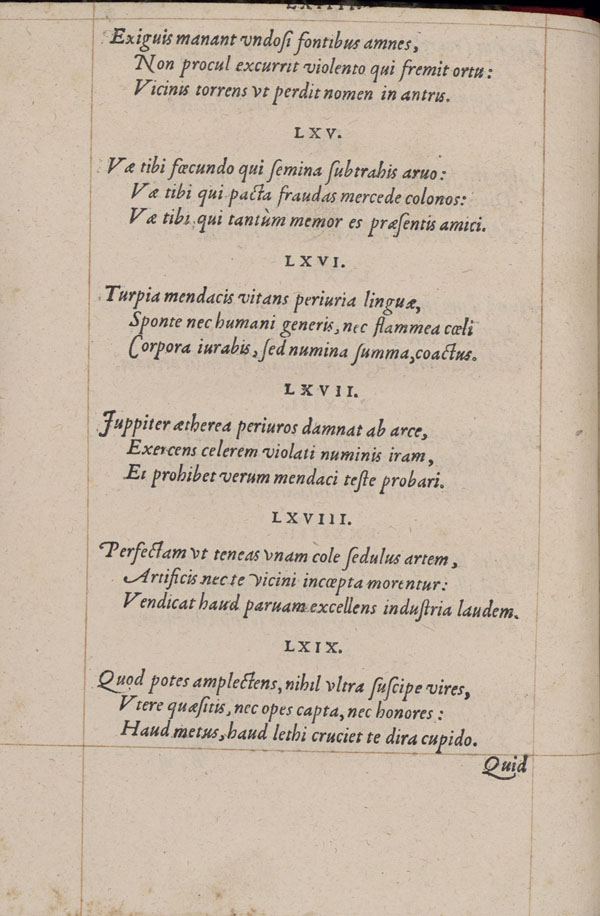 LXIIII.
Exiguis manant vndosi fontibus amnes,
Non procul excurrit violento qui fremit ortu:
Vicinis torrens vt perdit nomen in antris.
LXV.
Væ tibi fœcundo qui ſemina ſubtrahis aruo:
Væ tibi qui pacta fraudas mercede colonos:
Væ tibi qui tantùm memor es præſentis amici.
LXVI.
Turpia mendacis vitans periuria linguæ,
Sponte nec humani generis, nec flammea cœli
Corpora iurabis, ſed numina ſumma, coactus.
LXVII.
Juppiter ætherea periuros damnat ab arce,
Exercens celerem violati numinis iram,
Et prohibet verum mendaci teſte probari.
LXVIII.
Perfectam vt teneas vnam cole ſedulus artem,
Artificis nec te vicini incœpta morentur:
Vendicat haud paruam excellens induſtria laudem.
LXIX.
Quod potes amplectens, nihil vltra ſuſcipe vires,
Vtere quæſitis, nec opes capta, nec honores:
Haud metus, haud lethi cruciet te dira cupido.
Quid